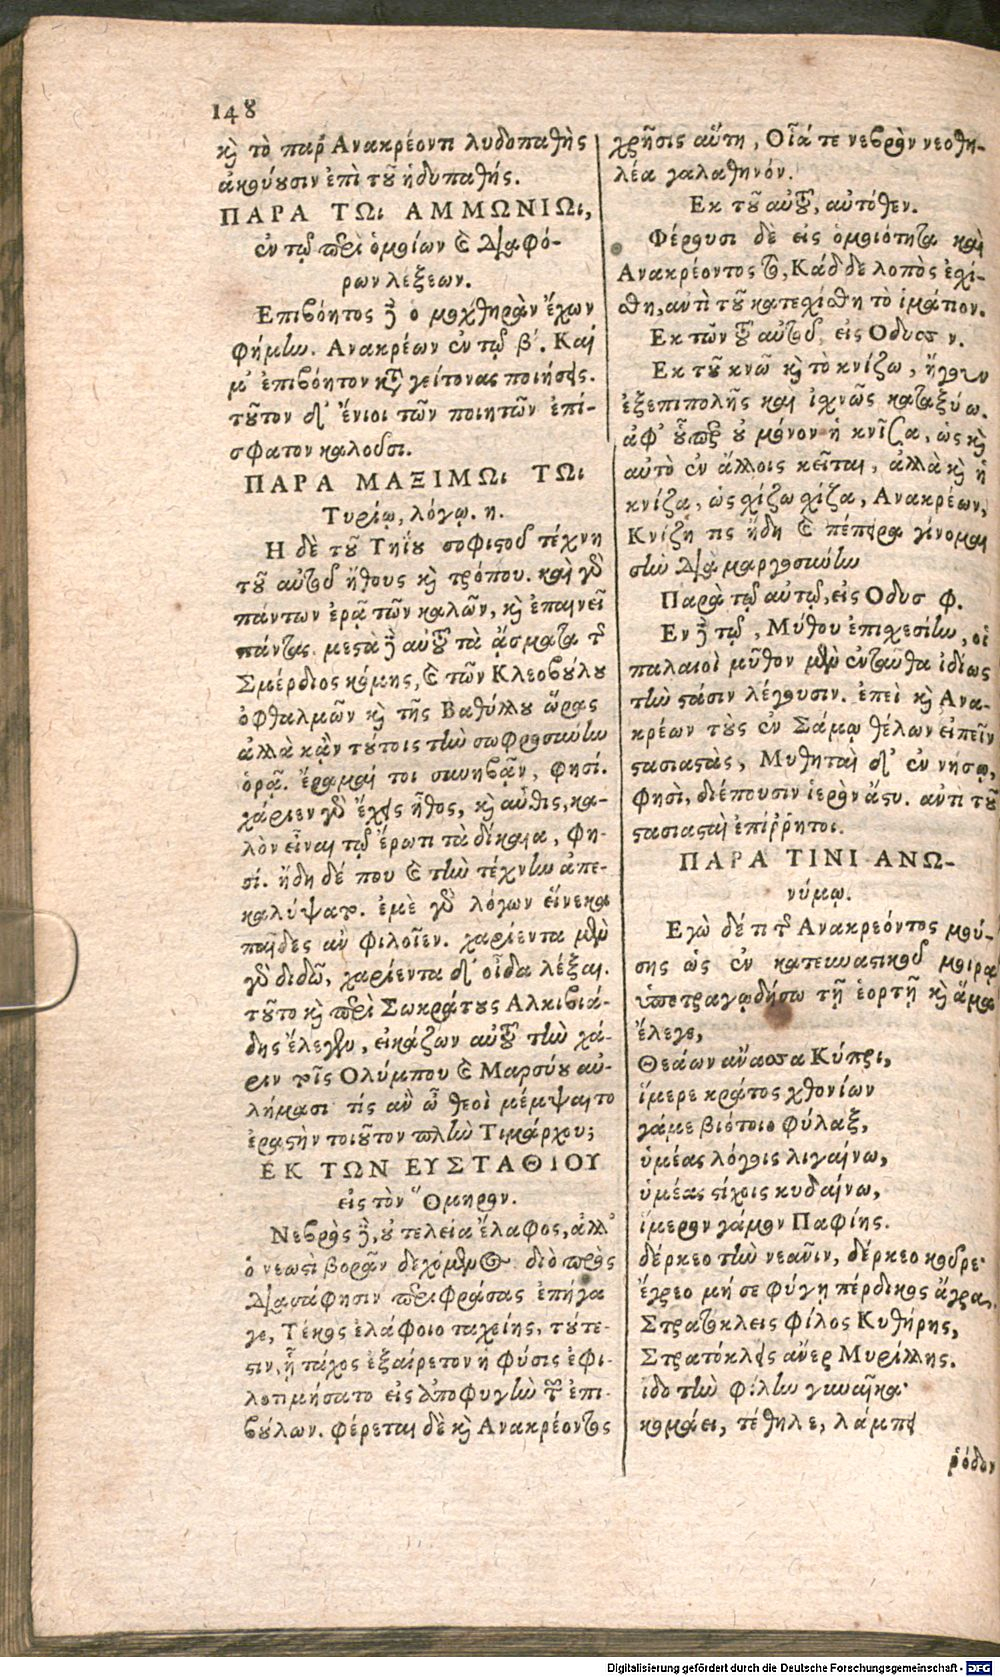 148
καὶ τὸ παρ' Ἀνακρέοντι λυδοπαθὴς
ἀκούουσιν ἐπὶ τοῦ ἡδυπαθής.
ΠΑΡΑ ΤΩι ΑΜΜΩΝΙΩι,
ἐν τῷ περὶ ὁμοίων καὶ διαφό-
ρων λέξεων.
Επιβόητος δὲ ὁ μοχθηρὰν ἔχων
φήμην. Ανακρέων ἐν τῷ β'. Καί
μ' ἐπιβόητον κατὰ γείτονας ποιήσεις.
τοῦτον δ' ἔνιοι τῶν ποιητῶν ἐπί-
σφατον καλοῦσι.
ΠΑΡΑ ΜΑΞΙΜΩι ΤΩι
Τυρίῳ, λόγῳ. η.
Η δὲ τοῦ Τηΐου σοφιστοῦ τέχνη
τοῦ αὐτοῦ ἤθους καὶ τρόπου. καὶ γὸ
πάντων ἐρᾷ τῶν καλῶν, καὶ ἐπαινεῖ
πάντας. μεστὰ δὲ αὐτοῦ τὰ ᾄσματα τῆς
Σμέρδιος κόμης, καὶ τῶν Κλεοβούλου
ὀφθαλμῶν καὶ τῆς Βαθύλλου ὥρας
ἀλλὰ κἂν τούτοις τὴν σωφροσύνην
ὁρᾷ. ἔραμαί τοι συνηβᾷν, φησί.
χάριεν γὸ ἔχεις ἦθος, καὶ αὖθις, κα-
λὸν εἶναι τῷ ἔρωτι τὰ δίκαια, φη-
σί. ἤδη δέ που καὶ τὴν τέχνην ἀπε-
καλύψατο. ἐμὲ γὸ λόγων εἵνεκα
παῖδες ἂν φιλοῖεν. χαρίεντα μὲν
γὸ διδῶ, χαρίεντα δ' οἶδα λέξαι.
τοῦτο καὶ περὶ Σωκράτους Αλκιβιά-
δης ἔλεγεν, εἰκάζων αὐτοῦ τὴν χά-
ριν τοῖς Ολύμπου καὶ Μαρσύου αὐ-
λήμασι τίς ἂν ὦ θεοὶ μέμψαιτο
ἐραστὴν τοιοῦτον πλὴν Τιμάρχου;
ΕΚ ΤΩΝ ΕΥΣΤΑΘΙΟΥ
εἰς τὸν Ὅμηρον.
Νεβρὸς δὲ, οὐ τελεία ἔλαφος, ἀλλ'
ὁ νεωστὶ βορᾶν δεχόμενος διὸ πρὸς
διασάφησιν περιφράσας ἐπήγα
γε, Τέκος ἐλάφοιο ταχείης, τούτε-
στιν, ᾗ τάχος ἐξαίρετον ἡ φύσις ἐφι-
λοτιμήσατο εἰς ἀποφυγὴν τῶν ἐπι-
βούλων. φέρεται δὲ καὶ Ανακρέοντος
χρῆσις αὕτη, Οἷά τε νεβρὸν νεοθη-
λέα γαλαθηνόν.
Εκ τοῦ αὐτοῦ, αὐτόθεν.
Φέρουσι δὲ εἰς ὁμοιότητα καὶ
Ανακρέοντος τὸ, Κάδ δε λοπὸς ἐσχί-
σθη, ἀντὶ τοῦ κατεσχίσθη τὸ ἱμάτιον.
Εκ τῶν τοῦ αὐτοῦ, εἰς Οδυσσ ν.
Εκ τοῦ κνῶ καὶ τὸ κνίζω, ἤγουν
ἐξεπιπολῆς καὶ ἰχνῶς καταξύω.
ἀφ' οὗπερ οὐ μόνον ἡ κνῖσα, ὡς καὶ
αὐτὸ ἐν ἄλλοις κεῖται, ἀλλὰ καὶ ἡ
κνίζα, ὡς χίζω χίζα, Ανακρέων,
Κνίζη τις ἤδη καὶ πέπειρα γίνομαι
σὴν διὰ μαργοσύνην
Παρὰ τῷ αὐτῷ, εἰς Οδυσ φ.
Εν δὲ τῷ, Μύθου ἐπιχεσίην, οἱ
παλαιοὶ μῦθον μὲν ἐνταῦθα ἰδίως
τὴν στάσιν λέγουσιν. ἐπεὶ καὶ Ανα-
κρέων τοὺς ἐν Σάμῳ θέλων εἰπεῖν
στασιαστὰς, Μυθηταὶ δ' ἐν νήσῳ,
Φησὶ, διέπουσιν ἱερὸν ἄστυ. ἀντὶ τοῦ
στασιασταὶ ἐπίῤῥητοι.
ΠΑΡΑ ΤΙΝΙ ΑΝΩ-
νύμῳ.
Εγὼ δέ τι τῆς Ανακρεόντος μού-
σης ὡς ἐν κατευναστικοῦ μοίρᾳ
ὑποτραγῳδήσω τῇ ἑορτῇ καὶ ἅμα
ἔλεγε,
Θεάων ἄνασσα Κύπρι,
ἵμερε κράτος χθονίων
γάμε βιότοιο φύλαξ,
ὑμέας λόγοις λιγαίνω,
ὑμέας στίχοις κυδαίνω,
ἵμερον γάμον Παφίης.
δέρκεο τὴν νεᾶνιν, δέρκεο κοῦρε·
ἔγρεο μή σε φύγῃ πέρδικος ἄγρα,
Στρατόκλεις φίλος Κυθήρης,
Στρατόκλεις ἄνερ Μυρίλλης.
ἴδε τὴν φίλην γυναῖκα·
κομάει, τέθηλε, λάμπει
ῥόδον
Digitalisierung gefördert durch die Deutsche Forschungsgemeinschaft - DFG